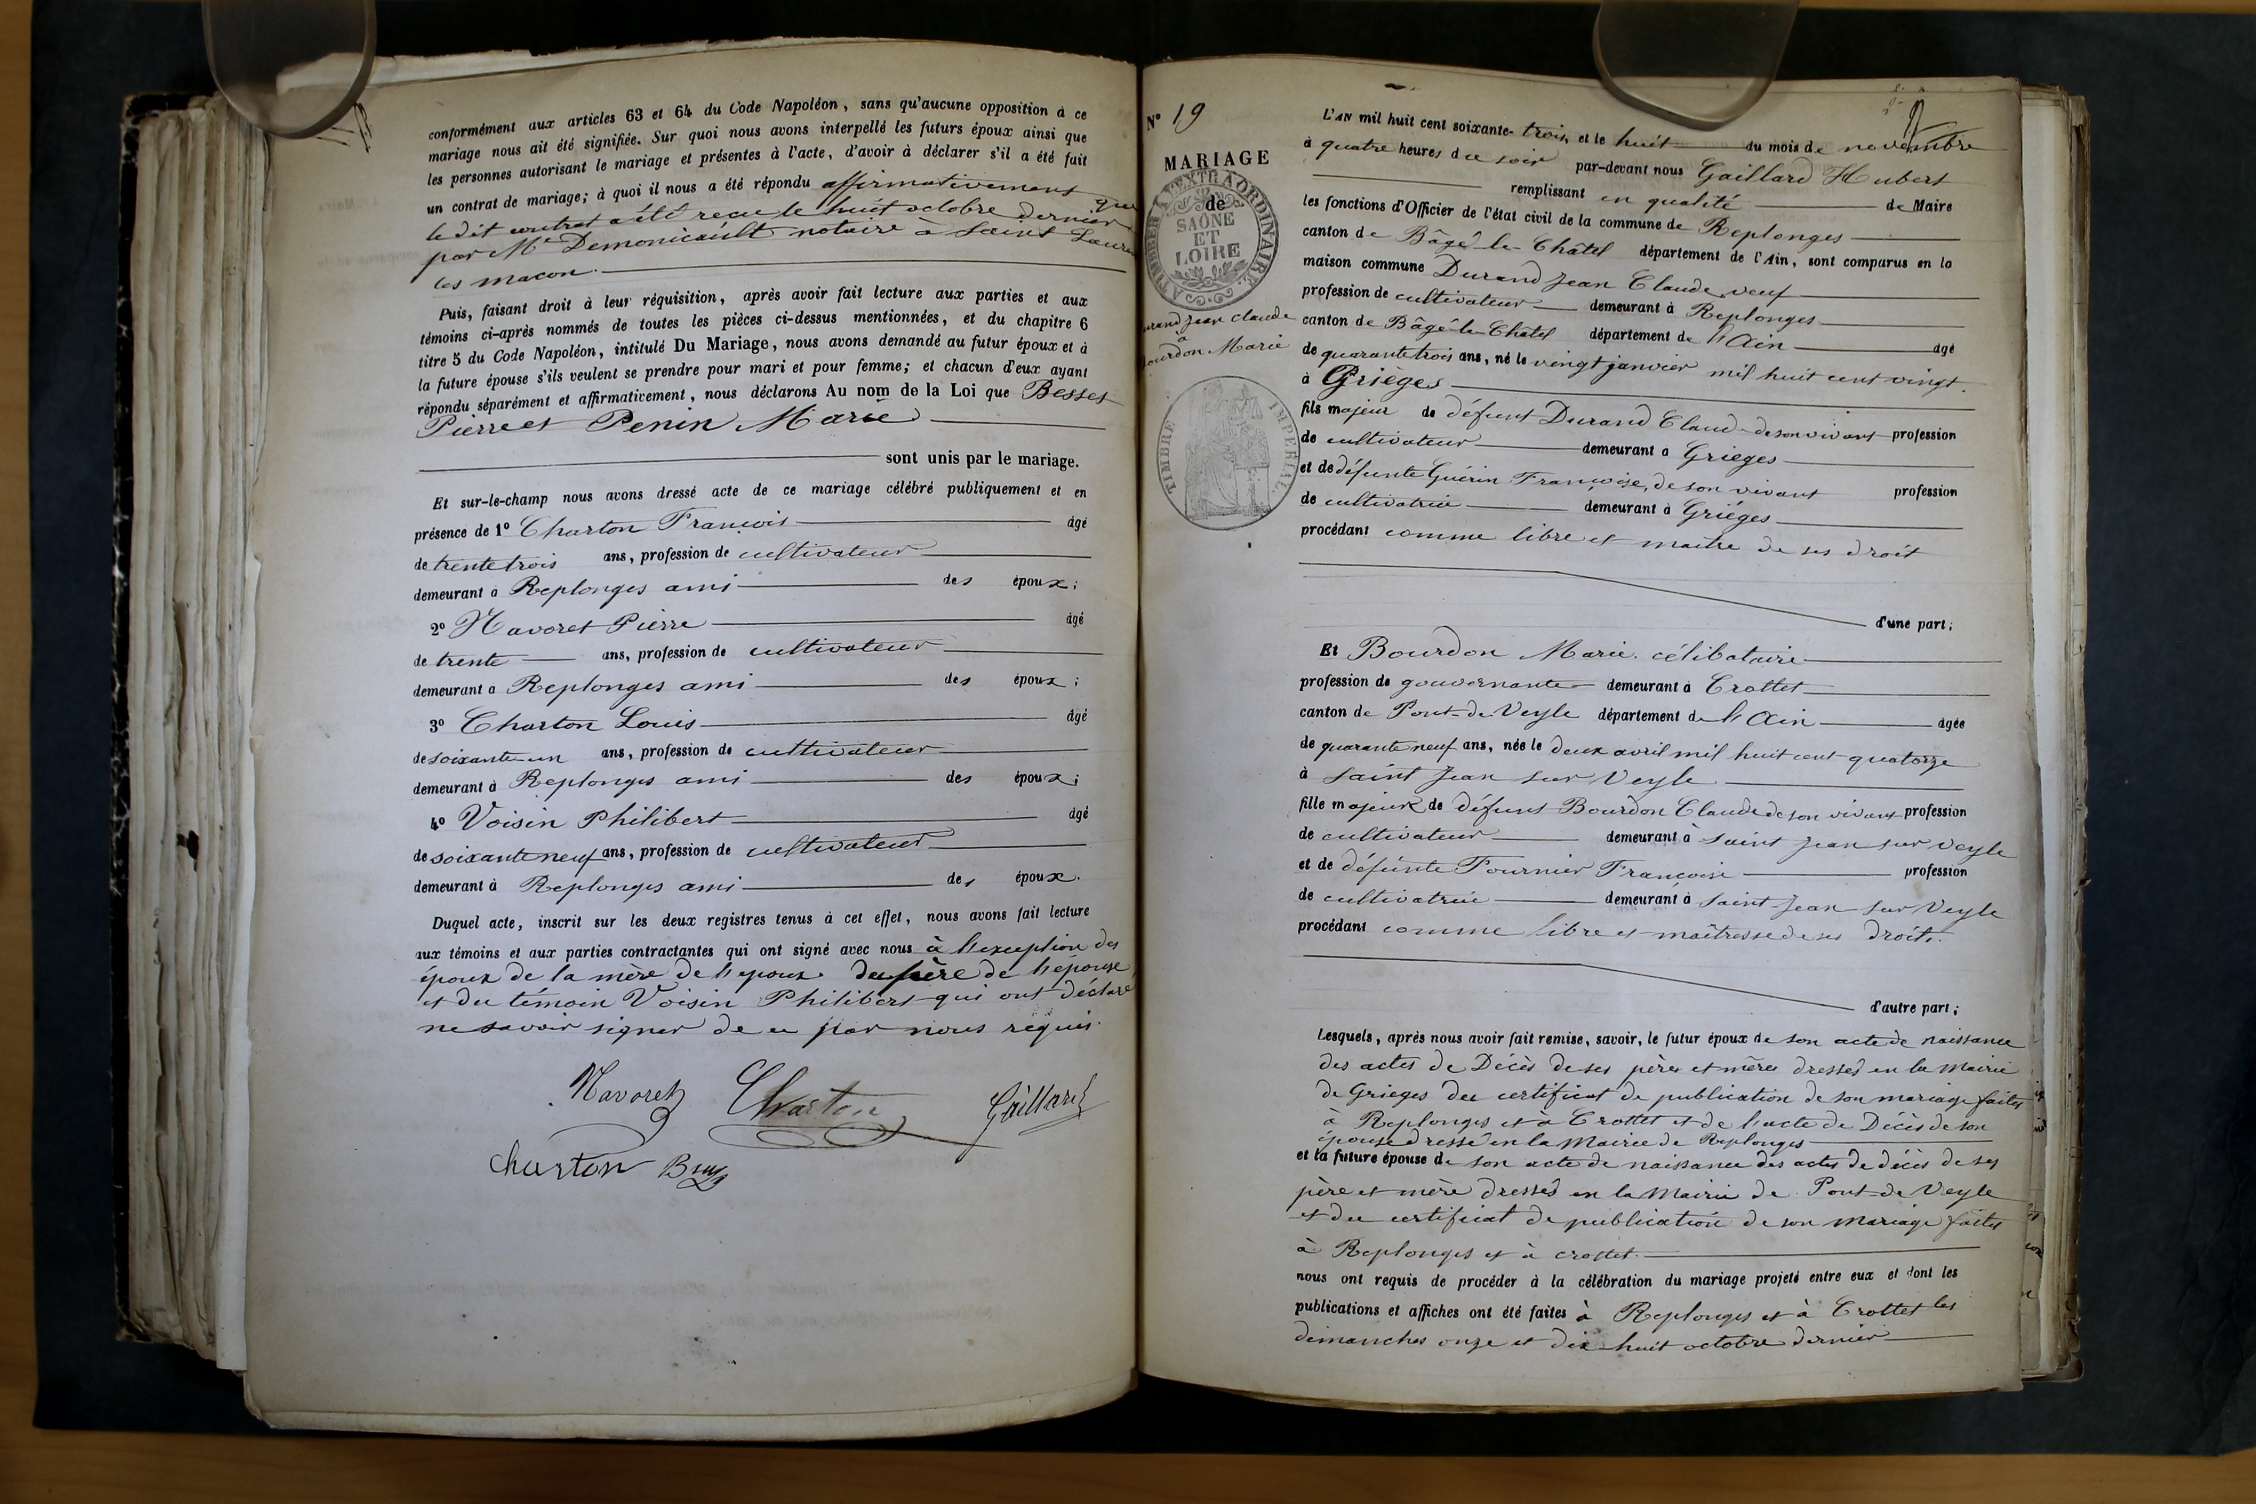 conformément aux articles 63 et 64 du Code Napoléon, sans qu'aucune opposition à ce
mariage nous ait été signifiée. Sur quoi nous avons interpellé les futurs époux ainsi que
les personnes autorisant le mariage et présentes à l'acte, d'avoir à déclarer s'il a été fait
un contrat de mariage; à quoi il nous a été répondu affirmativement que
le dit contrat a été reçu le huit octobre dernier
par Me Demonicault notaire à Saint Laurent
les macon.
Puis, faisant droit à leur réquisition, après avoir fait lecture aux parties et aux
témoins ci-après nommés de toutes les pièces ci-dessus mentionnées, et du chapitre 6
titre 5 du Code Napoléon, intitulé Du Mariage, nous avons demandé au futur époux et à
la future épouse s'ils veulent se prendre pour mari et pour femme; et chacun d'eux ayant
répondu séparément et affirmativement, nous déclarons Au nom de la Loi que Besses
Pierre et Penin Marie
sont unis par le mariage.
Et sur-le-champ nous avons dressé acte de ce mariage célébré publiquement et en
présence de 1º Charton François âgé
de trente trois ans, profession de cultivateur
demeurant à Replonges ami des époux;
2º Navoret Pierre âgé
de trente ans, profession de cultivateur
demeurant à Replonges ami des époux;
3º Charton Louis âgé
de soixante-un ans, profession de cultivateur
demeurant à Replonges ami des époux;
4º Voisin Philibert âgé
de soixante neuf ans, profession de cultivateur
demeurant à Replonges ami des époux.
Duquel acte, inscrit sur les deux registres tenus à cet effet, nous avons fait lecture
aux témoins et aux parties contractantes qui ont signé avec nous à l'exception des
époux de la mère de l'epoux du père de l'épouse
et du témoin Voisin Philibert qui ont déclaré
ne savoir signer de ce par nous requis.
Navoret Charton Gaillard
Charton
Nº 19
MARIAGE
de
A L'EXTRAORDINAIRE
SAÔNE
ET
LOIRE
Durand Jean Claude
à
Bourdon Marie
TIMBRE IMPERIAL
L'AN mil huit cent soixante-trois, et le huit du mois de novembre
à quatre heures du soir par-devant nous Gaillard Hubert
remplissant en qualité de Maire
les fonctions d'Officier de l'état civil de la commune de Replonges
canton de Bâgé-le-Châtel département de l'Ain, sont comparus en la
maison commune Durand Jean Claude, veuf
profession de cultivateur demeurant à Replonges
canton de Bâgé-le-Châtel département de l'Ain âgé
de quarante trois ans, né le vingt janvier mil huit cent vingt.
à Grièges
fils majeur de défunt Durand Claud de son vivant profession
de cultivateur demeurant à Grièges
et de défunte Guérin Françoise, de son vivant profession
de cultivatrice demeurant à Grièges
procédant comme libre et maître de ses droit
d'une part;
Et Bourdon Marie célibataire
profession de gouvernante demeurant à Crottet
canton de Pont-de-Veyle département de l'Ain âgée
de quarante neuf ans, née le deux avril mil huit cent quatorze
à Saint Jean sur Veyle
fille majeure de défunt Bourdon Claude de son vivant profession
de cultivateur demeurant à Saint Jean sur Veyle
et de défunte Fournier Françoise profession
de cultivatrice demeurant à Saint Jean sur Veyle
procédant comme libre et maîtresse de ses droits.
d'autre part;
Lesquels, après nous avoir fait remise, savoir, le futur époux de son acte de naissance
des actes de Décès de ses père et mère dressés en la Mairie
de Grieges du certificat de publication de son mariage faites
à Replonges et à Crottet et de l'acte de Décès de son
épouse dressé en la Mairie de Replonges
et la future épouse de son acte de naissance des actes de décès de ses
père et mère dressés en la Mairie de Pont-de-Veyle
et du certificat de publication de son mariage faites
à Replonges et à crottet.
nous ont requis de procéder à la célébration du mariage projeté entre eux et dont les
publications et affiches ont été faites à Replonges et à Crottet les
dimanches onze et dix-huit octobre dernier